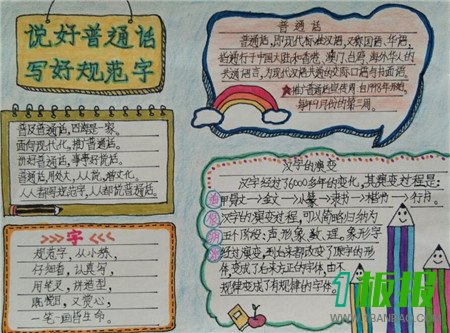 说好普通话
写好规范字
普及普通话,四海是一家。
面向现代化,推广普通话。
讲好普通话,事事好凭话。
人人都写规范字,人人都说普通话。
字
规范字,从小练,
仔细看,认真写,
用笔又,讲造型,
既悦目,又赏心,
一笔一画皆生命。
普通话
普通话,即现代标准汉语,又称国语、华语,
话通行于中国大陆和香港、澳门、台湾、海外华人的
共通语言,为现代汉语共通的交际口语与书面语。
推广普通话宣传周:自1998年始,
每年9月份的第三周。
汉字的演变
汉字经过了6000多年的变化,其演变过程是:
甲骨文→金文→小篆→隶书→楷书→行书。
汉字的演变过程,可以简略归纳为
五个阶段:声、形、象、数、理。象形字
经过演变,到后来都改变了原字的形
体,变成了后来方正的字体,由不
规律变成了有规律的字体。
1板报
WWW.1BANBAO.COM